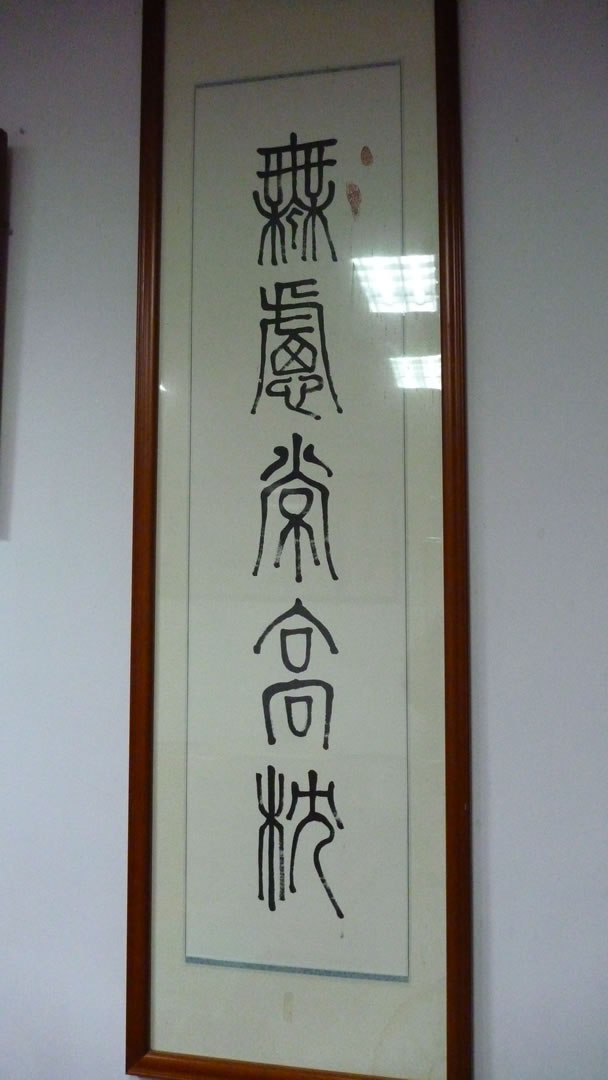 無慮常高枕